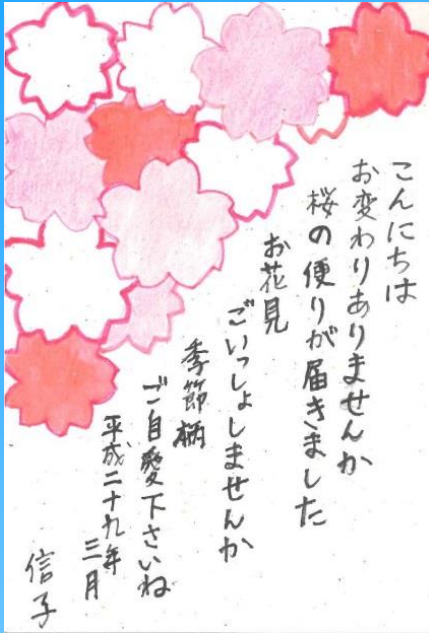 こんにちは
お変わりありませんか
桜の便りが届きました
お花見
ごいっしょしませんか
季節柄
ご自愛下さいね
平成二十九年
三月
信子